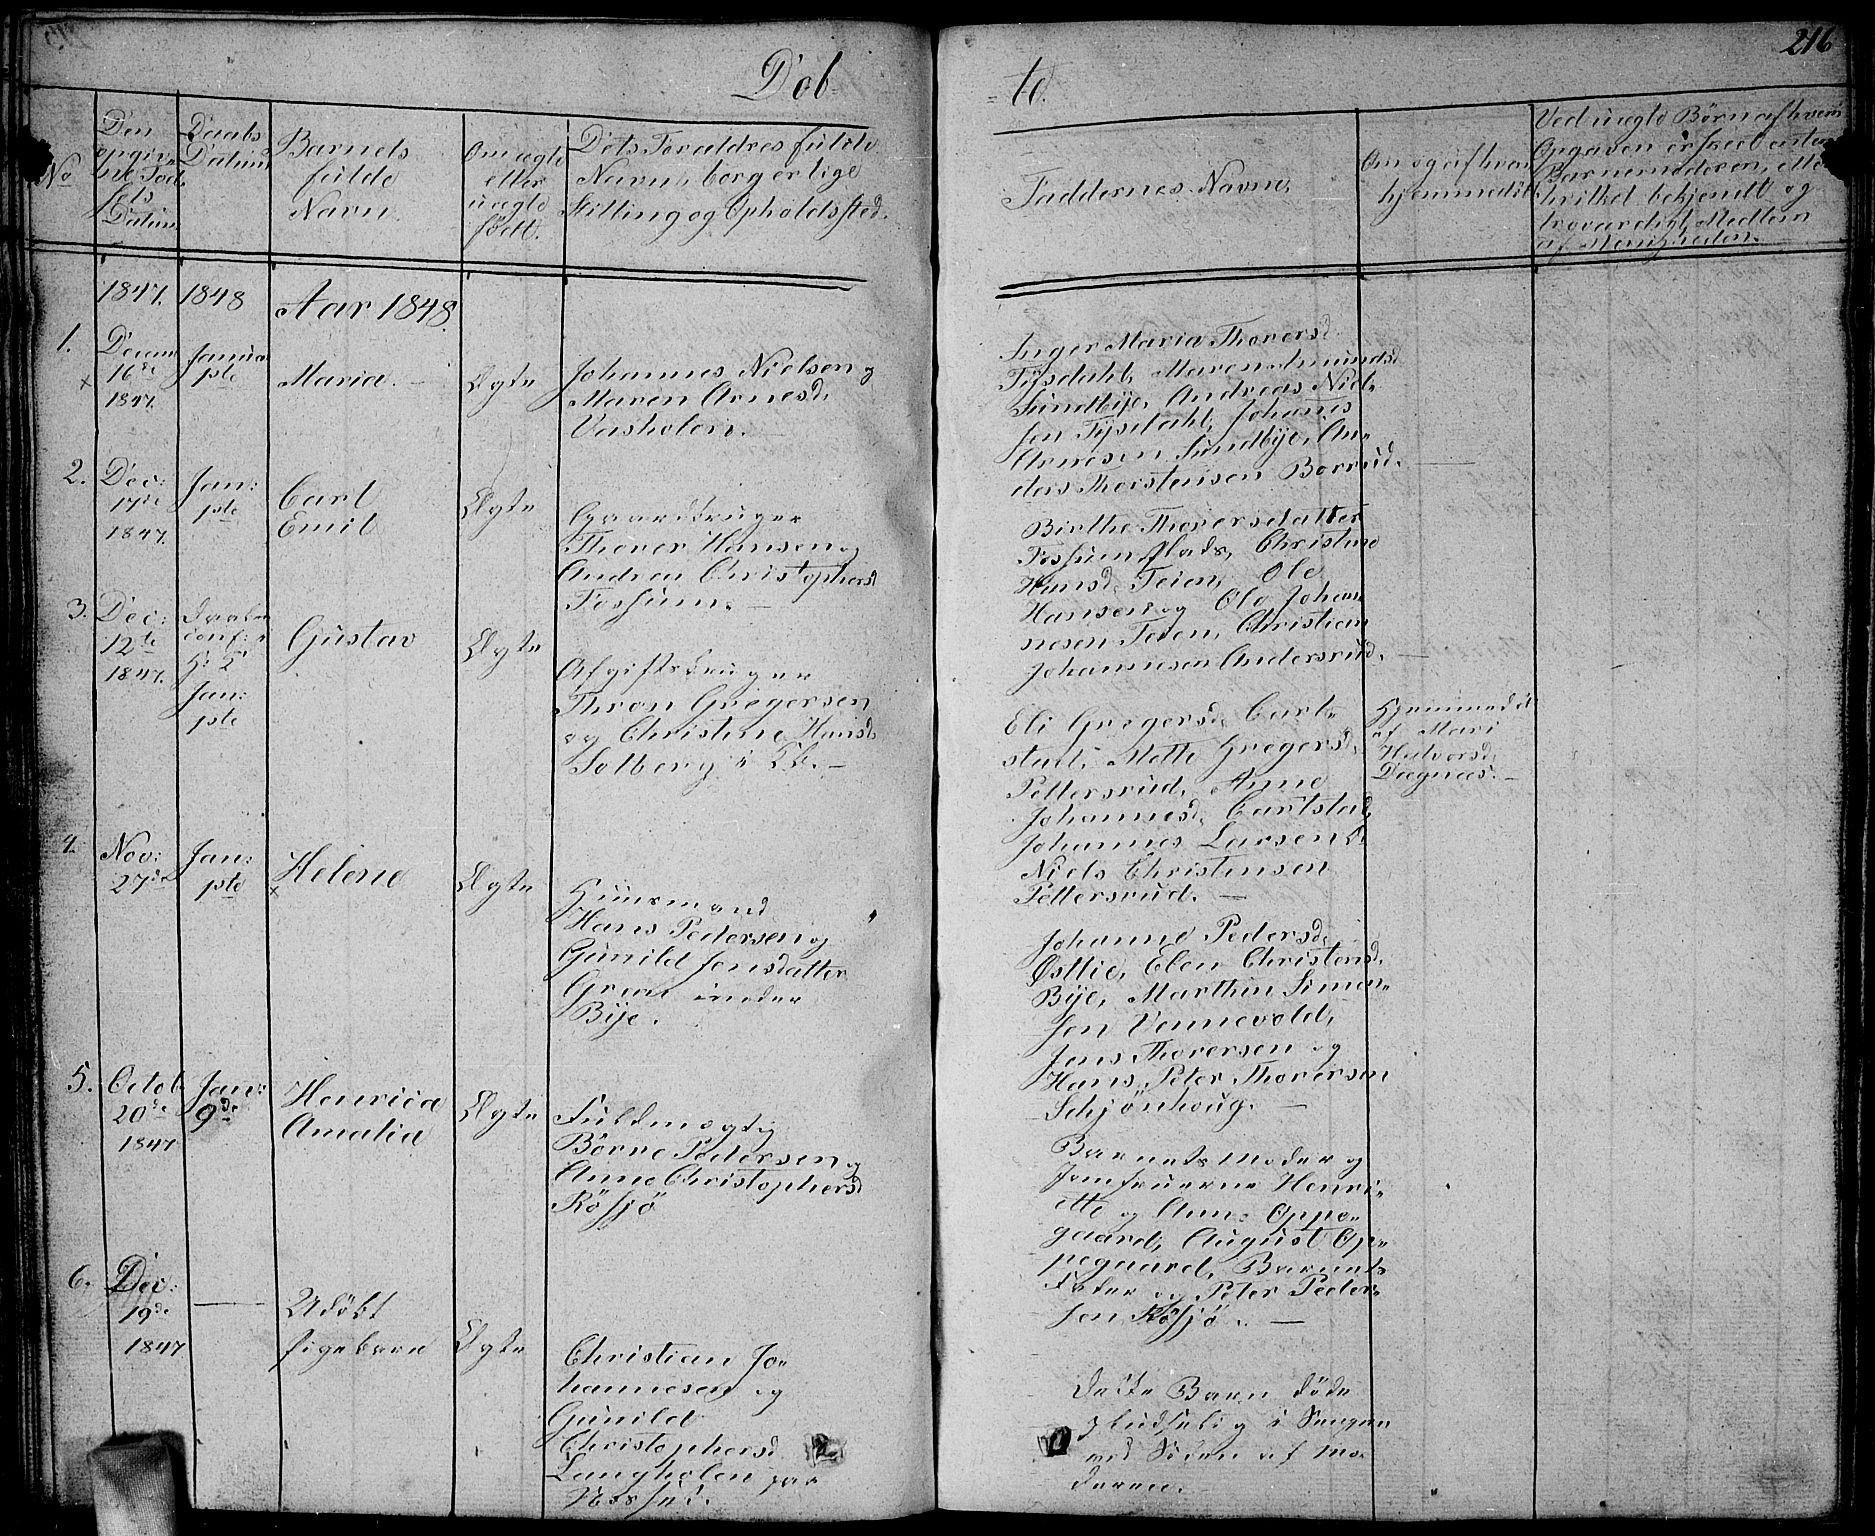 216
Döb= =te.
No
Den
opgiv=
ne Fød=
sels
Datum
Daabs
Datum
Barnets
fulde
Navn
Om ægte
eller
uægte
født.
Dets Forældres fulde
Navn, borgerlige
Stilling og Opholdssted.
Faddernes Navne,
Om og af hvem
hjemmedöbt
Ved uægte Børn af hvem
Opgaven er skeet enten
Barnemoderen, eller
hvilket bekjendt og
troværdigt Medlem
af Menigheden.
1847. 1848 Aar 1848
1.
Decem
16de
1847.
Januar
1ste
Maria.
Ægte
Johannes Nielsen og
Maren Arnesd.
Vasholen.
Inger Maria Thorersd.
Tysdahl, Maren Amundsd.
Sundbye, Andreas Niel=
sen Tysdahl, Johanis
Arnesen Sundbye, An=
ders Thorstensen Borrud. —
2.
Dec:
17de
1847.
Jan:
1ste
Carl
Emil
Ægte
Gaardbruger
Thorer Hansen og
Andrea Christophersd
Fossum. —
Birthe Thorersdatter
Fossum Plads, Christine
Hansd. Teien, Ole
Hansen og Ole Johan=
nesen Teien, Christian
Johannesen Andersrud. —
3.
Dec:
12te
1847.
Daaben
conf: i
K: 
Jan:
1ste
Gustav
Ægte
Afgiftsbruger
Thron Gregersen
og Christine Hansd.
Solberg i Kb. —
Eli Gregersd. Carl=
stad, Mette Gregersd.
Pettersrud, Anne
Johannesd. Carlstad,
Johannes Larsen
Niels Christensen
Pettersrud. —
Hjemmedöbt
af Mari
Halvorsd.
Dægnæs. —
4.
Nov:
27de
Jan:
1ste
Helene
Ægte
Huusmand
Hans Pedersen og
Gunild Jensdatter
Green under
Bye.
Johanne Pedersd.
Østlie, Elen Christensd.
Bye, Marthin Simen=
sen Vennevold,
Jens Thorersen og
Hans Peter Thorersen
Schjönhoug. —
5.
Octob
20de
1847
Jan:
9de
Henrica
Amalia
Ægte
Fuldmægtig
Börre Pedersen og
Anne Christophersd
Rösjö
Barnets Moder og
Jomfruerne Henri=
ette og Ann: Oppe=
gaard, August Op=
pegaard, Barnets
Fader og Peter Peder=
sen Rösjö. —
6.
Dec:
19de
1847
—
Udöbt
Pigebarn
Ægte
Christian Jo=
hannesen og
Gunild
Christophersd
Langholen paa
Næssed.
Dette Barn döde
pludselig i Sengen
ved Siden af Mo=
deren.